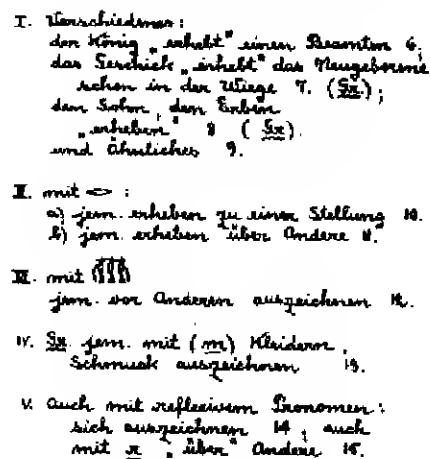 I. Verschiedenes:
der König „erhebt" einen Beamten 6,
das Geschick „erhebt" das Neugeborene
schon in der Wiege 7. (Gr.);
den Sohn, den Erben
„erheben" 8 (Gr.)
und Ähnliches 9.
II. mit 𓂋 :
a) jem. erheben zu einer Stellung 10.
b) jem. erheben über Andere 11.
III. mit 𓏃
jem. vor Anderen auszeichnen 12.
IV. Gr. jem. mit (m) Kleidern,
Schmuck auszeichnen 13.
V. Auch mit reflexivem Pronomen:
sich auszeichnen 14, auch
mit r „über" Andere 15.